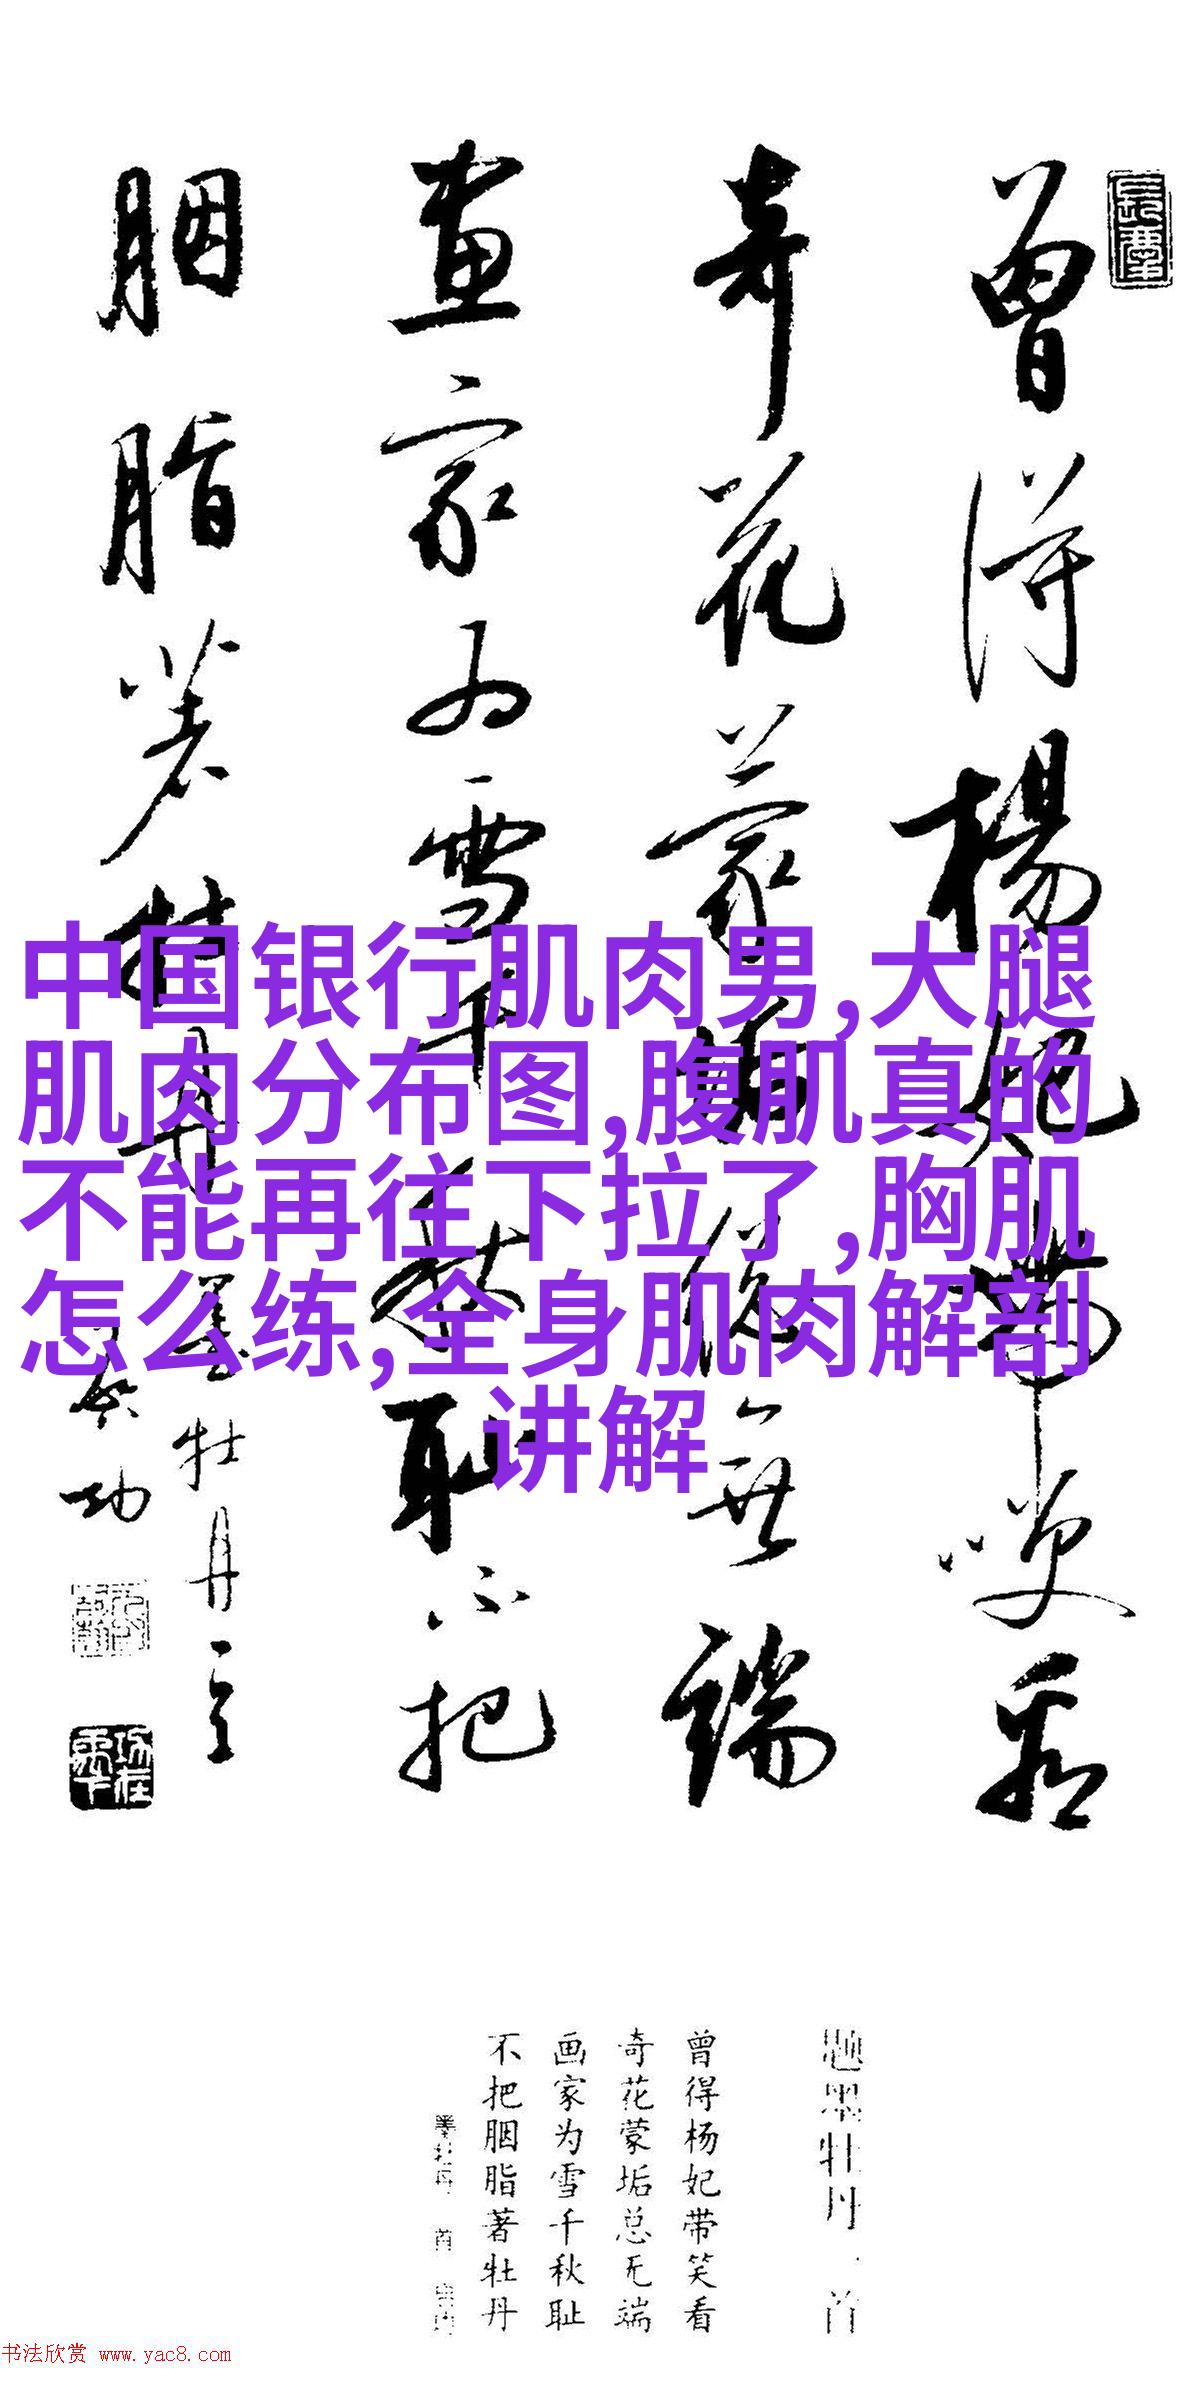 曾得楊妃帶笑看
奇花蒙垢總無端
畫家为雪千秋耻不把
胭脂著牡丹
墨牡丹一首
启功
中国银行肌肉男,大腿
肌肉分布图,腹肌真的
不能再往下拉了,胸肌
怎么练,全身肌肉解剖
讲解
题墨牡丹一首
曾得杨妃带笑看
奇花蒙垢总无端
画家为雪千秋耻
不把胭脂著牡丹
书法欣赏 www.yac8.com